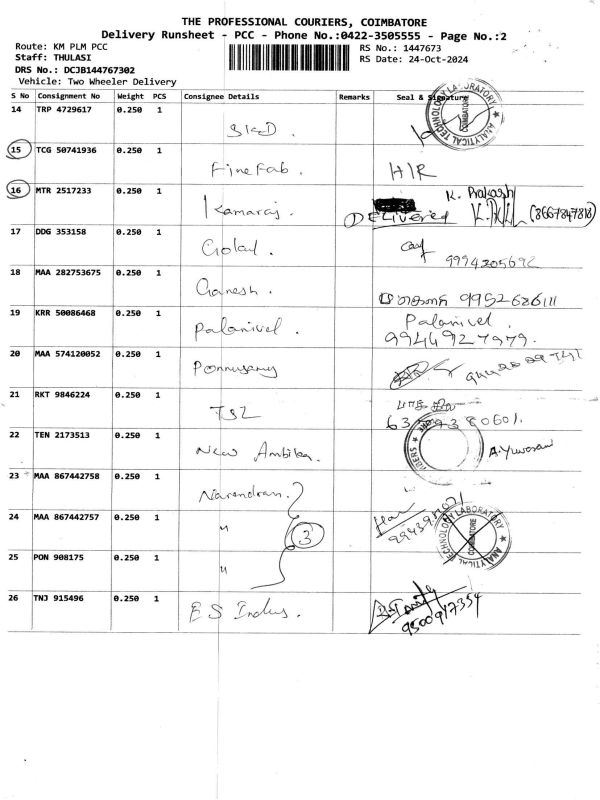 THE PROFESSIONAL COURIERS, COIMBATORE
Delivery Runsheet - PCC - Phone No.:0422-3505555 - Page No.:2
Route: KM PLM PCC
RS No.: 1447673
Staff: THULASI
RS Date: 24-Oct-2024
DRS No.: DCJB144767302
Vehicle: Two Wheeler Delivery
S No Consignment No Weight PCS Consignee Details Remarks Seal & Signature
14 TRP 4729617 0.250 1
ANALYTICAL TECHNOLOGY LABORATORY COIMBATORE
15 TCG 50741936 0.250 1 Fine Fab. H/R
16 MTR 2517233 0.250 1 Kamaraj. Delivered K. Prakash (8667847818)
17 DDG 353158 0.250 1 9994205692
18 MAA 282753675 0.250 1 Ganesh. 9952686111
19 KRR 50086468 0.250 1 Palanivel. Palanivel.
9944927979.
20 MAA 574120052 0.250 1 Ponnusamy
21 RKT 9846224 0.250 1
22 TEN 2173513 0.250 1 New Ambika. A.Yuvaraw
23 MAA 867442758 0.250 1 Narendran.
24 MAA 867442757 0.250 1 " 3
ANALYTICAL TECHNOLOGY LABORATORY COIMBATORE
25 PON 908175 0.250 1 "
26 TNJ 915496 0.250 1 B S Indus.
9500917354